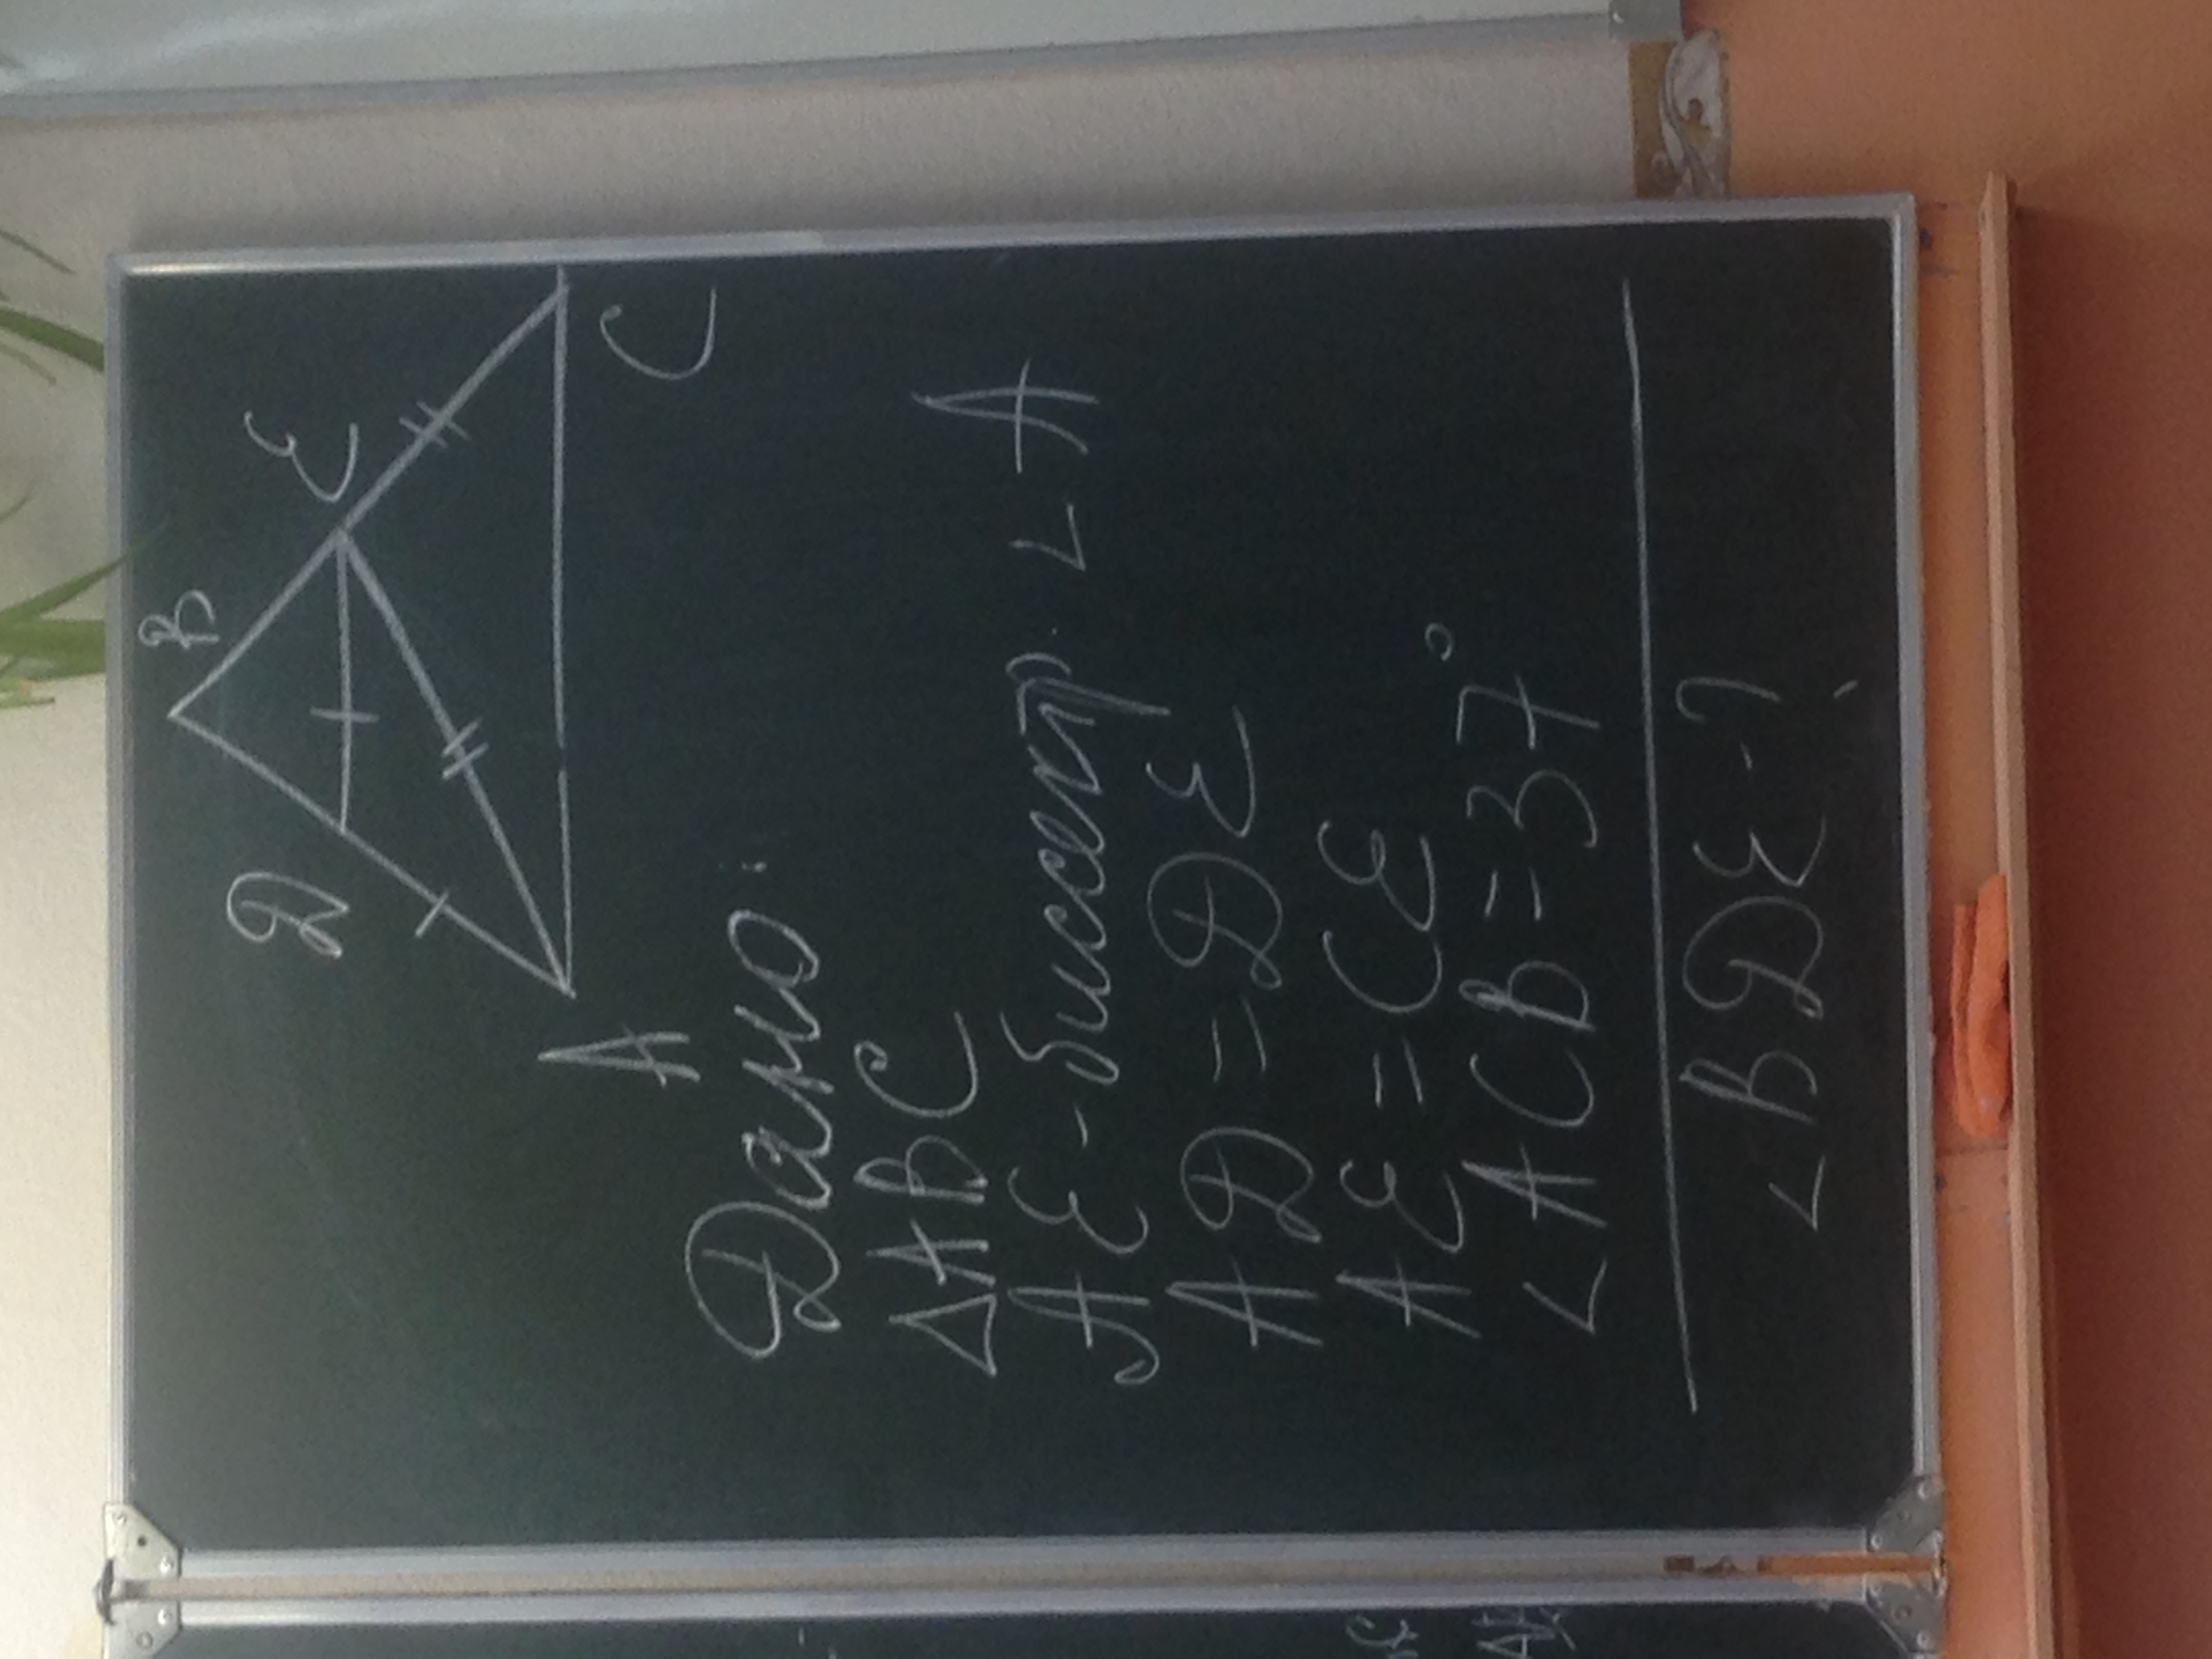 B
D
E
A
C
Дано:
ΔABC
AE - биссектр. ∠A
AD = DE
AE = CE
∠ACB = 37°
∠BDE - ?